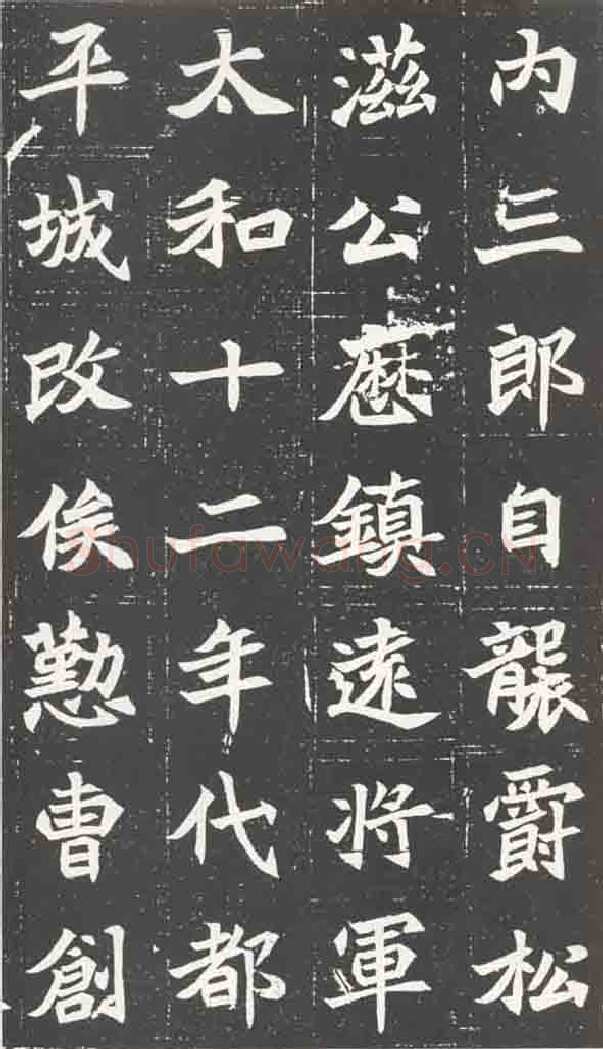 内三郎自襲爵松
滋公歷鎮遠将軍
太和十二年代都
平城改俟懃曺創
Shufawang.CN